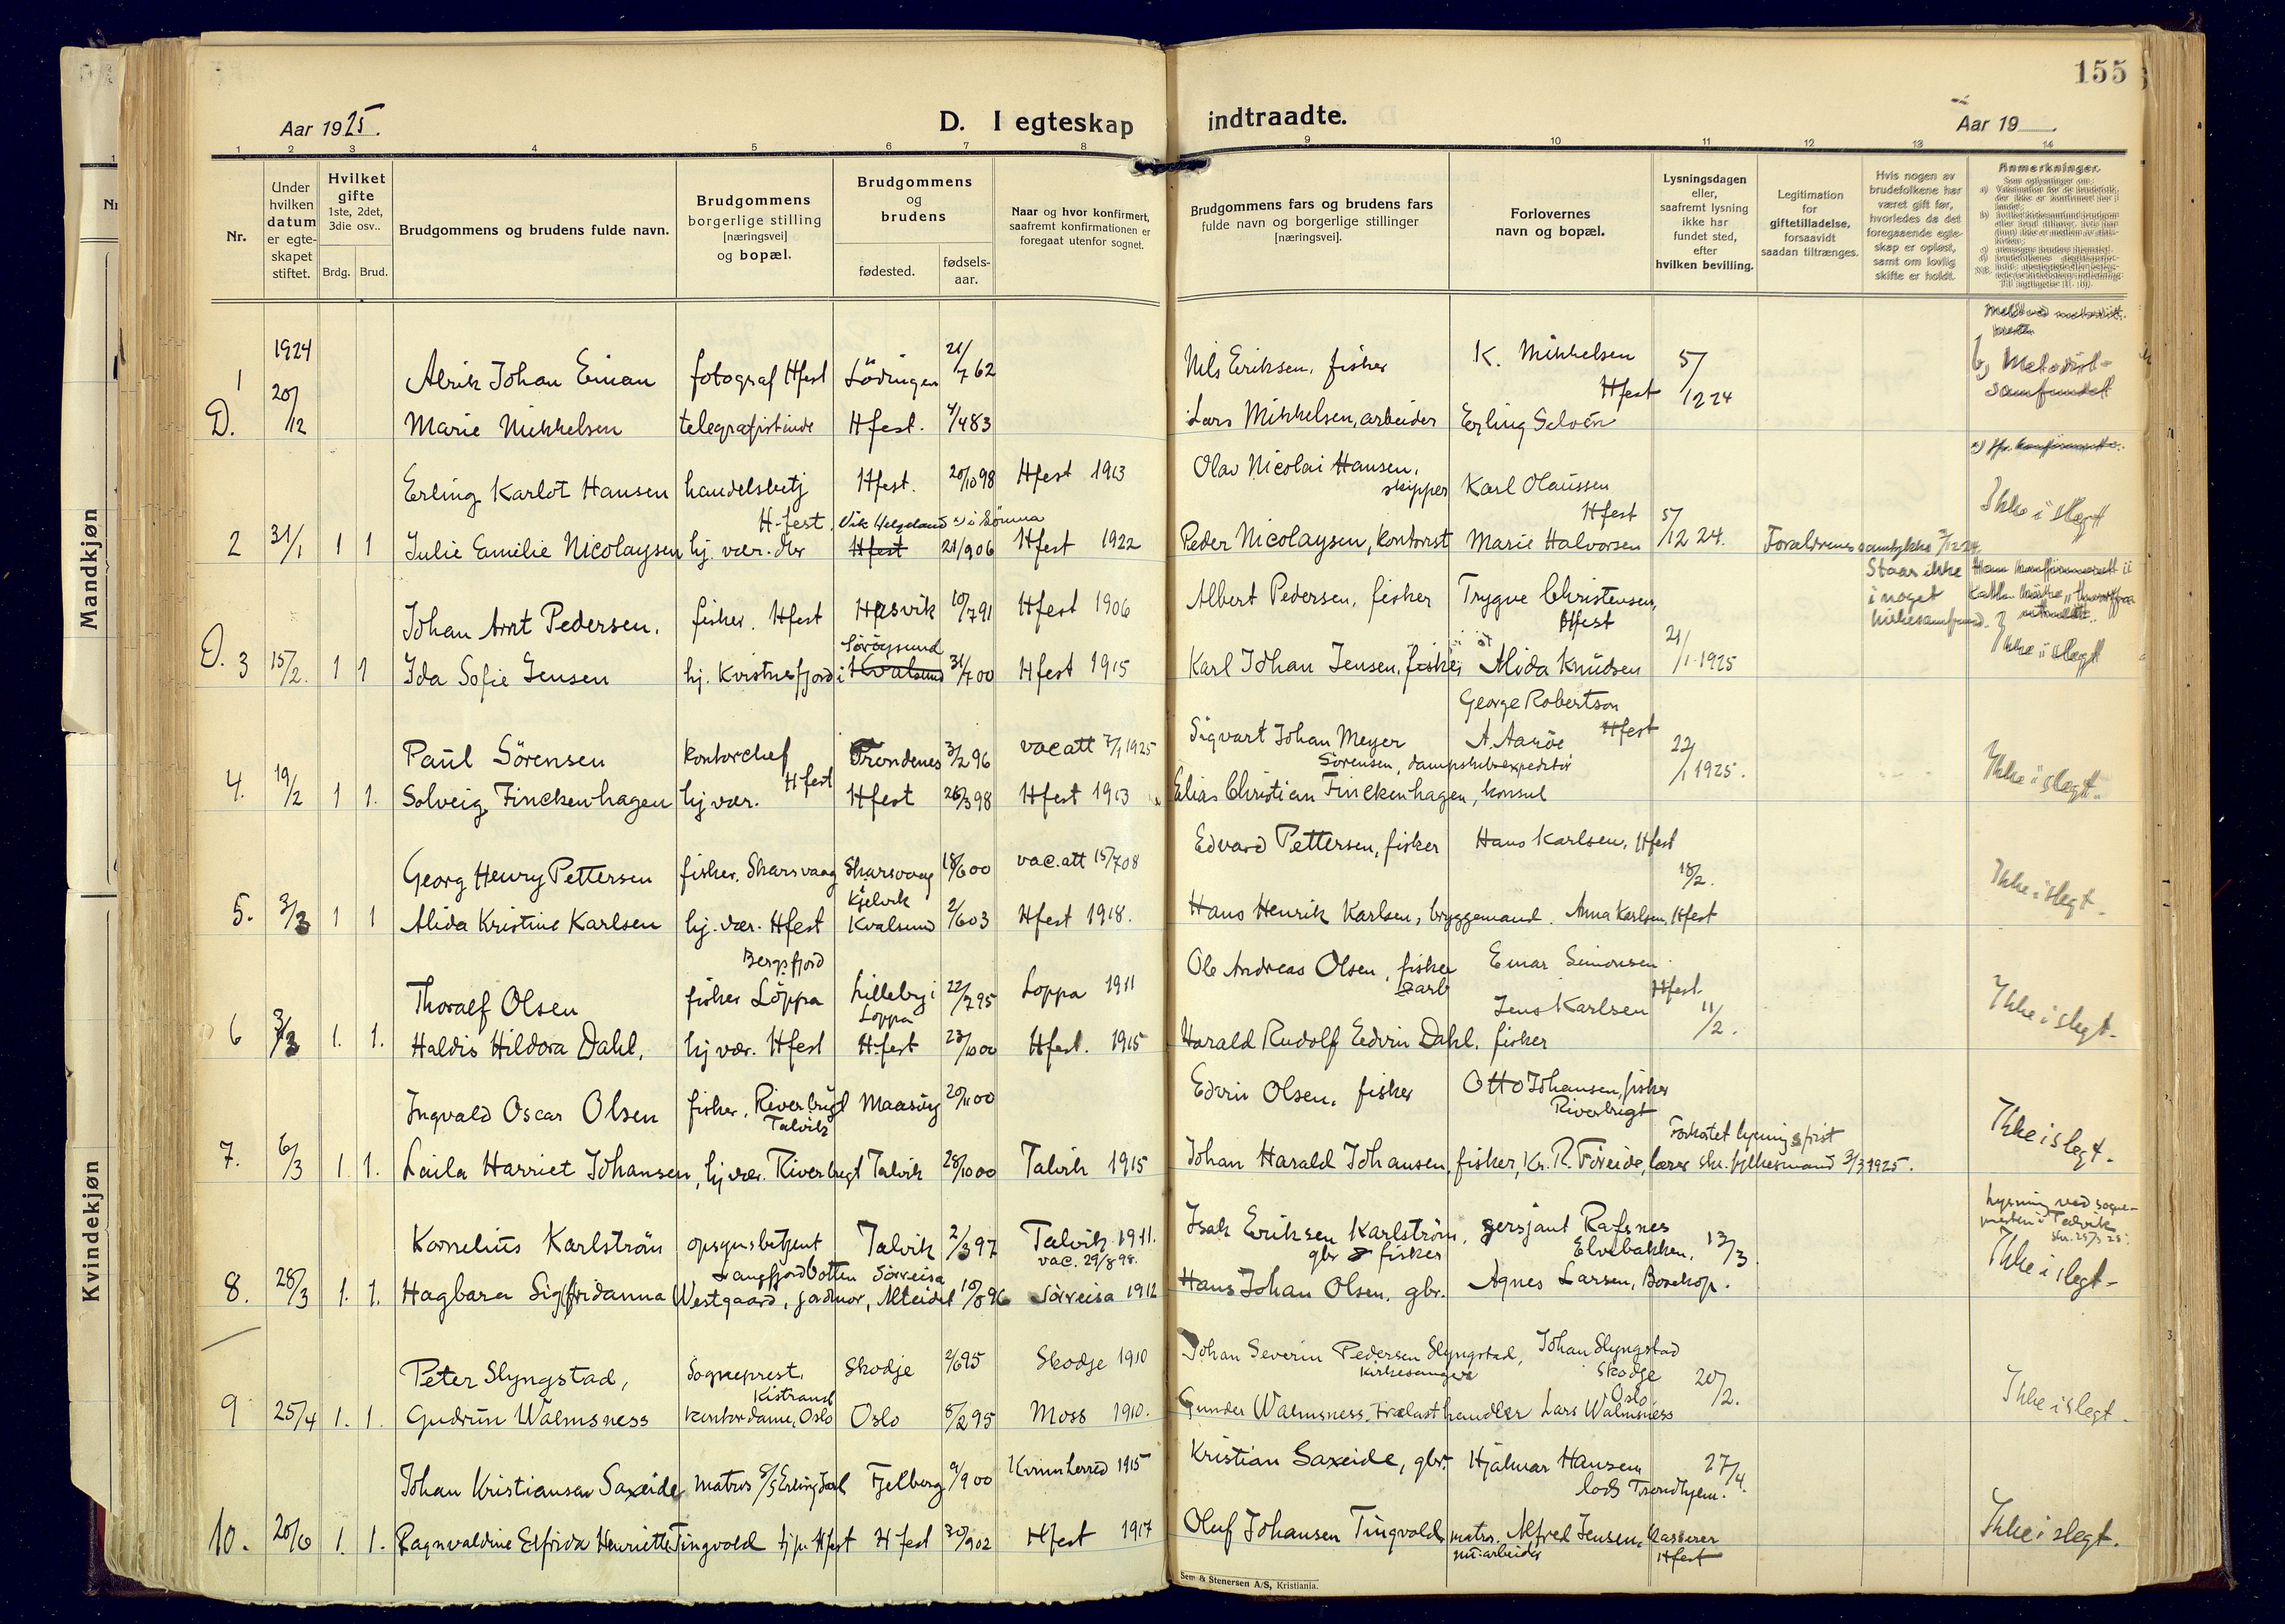 155
Aar 1925.
D. I egteskap indtraadte.
Aar 19
1 2 3 4 5 6 7 8 9 10 11 12 13 14
Nr.
Under hvilken datum er egteskapet stiftet.
Hvilket gifte 1ste, 2det, 3die osv..
Brdg. Brud.
Brudgommens og brudens fulde navn.
Brudgommens borgerlige stilling [næringsvei] og bopæl.
Brudgommens og brudens
fødested.
fødselsaar.
Naar og hvor konfirmert, saafremt konfirmationen er foregaat utenfor sognet.
Brudgommens fars og brudens fars fulde navn og borgerlige stillinger [næringsvei].
Forlovernes navn og bopæl.
Lysningsdagen eller, saafremt lysning ikke har fundet sted, efter hvilken bevilling.
Legitimation for giftetilladelse, forsaavidt saadan tiltrænges.
Hvis nogen av brudefolkene har været gift før, hvorledes da det foregaaende egteskap er opløst, samt om lovlig skifte er holdt.
Anmerkninger.
Mandkjøn
Kvindekjøn
1924
1 Alrik Johan Einan fotograf Hfest Lödingen 21/7 62 Nils Eriksen, fisker K. Mikkelsen Hfest 5/12 24 b) Metodistsamfundet
D. 20/12 Marie Mikkelsen telegrafistinde Hfest. 4/4 83 Lars Mikkelsen, arbeider Erling Selvén
Erling Karlot Hansen handelsbetj H-fest. Hfest. 20/10 98 Hfest 1913 Olav Nicolai Hansen, skipper Karl Olaussen Hfest Ikke i slegt
2 31/1 1 1 Julie Emilie Nicolaysen hj. vær. Hfest 21/9 06 Hfest 1922 Peder Nicolaysen, kontorist Marie Halvorsen 5/12 24. Forældrenes samtykke 2/12 24
Johan Arnt Pedersen. fisker. Hfest Hasvik 10/7 91 Hfest 1906 Albert Pedersen, fisker Trygve Christensen, Hfest Staar ikke i noget kirkesamfund.
D. 3 15/2. 1 1 Ida Sofie Jensen hj. Kvistnesfjord i Söröysund Kvalsund 31/7 00 Hfest 1915 Karl Johan Jensen, fisker Alida Knudsen 21/1 1925 Ikke i slegt
George Robertson Hfest
Paul Sörensen kontorchef Hfest Trondenes 3/2 96 vac att 7/1 1925 Sigvart Johan Meyer Sörensen, dampskibsexpeditör A. Aaröe 22/1 1925. Ikke i slegt.
4. 19/2 1 1. Solveig Finckenhagen hj vær. Hfest 26/3 98 Hfest 1913 Elias Christian Finckenhagen, konsul
Georg Henry Pettersen fisker. Skarsvaag Skarsvaag Kjelvik 18/6 00 vac. att 15/7 08 Edvard Pettersen, fisker Hans Karlsen, Hfest 18/2. Ikke i slegt.
5. 3/3 1 1 Alida Kristine Karlsen hj. vær. Hfest Kvalsund 2/6 03 Hfest 1918. Hans Henrik Karlsen, bryggemand. Anna Karlsen, Hfest
Thoralf Olsen fisker Bergsfjord Loppa Lilleby i Loppa 22/7 95 Loppa 1911 Ole Andreas Olsen, fisker Einar Simonsen Hfest. Ikke i slegt.
6 3/3 1. 1. Haldis Hildora Dahl, hj vær. Hfest H-fest 23/10 00 Hfest. 1915 Harald Rudolf Edvin Dahl. fisker Jens Karlsen 11/2.
Ingvald Oscar Olsen fisker, Riverbugt Talvik Maasöy 20/11 00 Edvin Olsen, fisker Otto Johansen, fisker Riverbugt
7. 6/3 1. 1. Laila Harriet Johansen, hj vær. Riverbugt Talvik 28/10 00 Talvik 1915 Johan Harald Johansen, fisker, Kr. R. Föreide, lærer Forkortet lysningsfrist skr. fylkesmand 3/3 1925. Ikke i slegt.
Kornelius Karlström opsynsbetjent Langfjordbotten Talvik 2/3 97 Talvik 1911. vac. 29/8 98. Isak Eriksen Karlström, gbr & fisker sersjant Rafsnes Elvebakken, 13/3 Lysning ved sognepresten i Talvik Ikke i slegt.
8. 28/3 1. 1. Hagbara Sigfridanna Westgaard, jordmor, Alteidet Sörreisa 10/8 96 Sörreisa 1912 Hans Johan Olsen, gbr. Agnes Larsen, Bosekop.
Peter Slyngstad, Sogneprest, Kistrand Skodje 2/6 95 Skodje 1910 Johan Severin Pedersen Slyngstad, kirkesanger Johan Slyngstad Skodje 20/2. Ikke i slegt.
9 25/4 1. 1. Gudrun Walmsness kontordame, Oslo Oslo 8/2 95 Moss 1910. Gunder Walmsness, Trælasthandler Lars Walmsness Oslo
Johan Kristiansen Saxeide matros S/S Erling Jarl Fjelberg 9/9 00 Kvinnherred 1915 Kristian Saxeide, gbr. Hjalmar Hansen lods Trondhjem. 27/4. Ikke i slegt.
10. 20/6 1. 1. Ragnvaldine Elfrida Henriette Tingvold tj.p. Hfest H fest 30/9 02 Hfest 1917 Oluf Johansen Tingvold matros. nu arbeider Alfred Jensen, kasserer Hfest
Sem & Stenersen A/S, Kristiania.